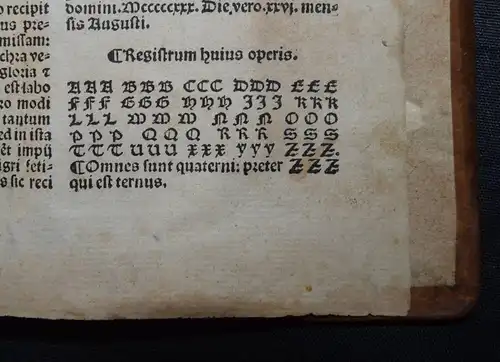 o recipit
us pre-
missam:
chra ve-
gloria ⁊
est labo
ro modi
tantum
ed in ista
ēt impij
igri seti-
s sic reci
domini. Mcccccxxx. Die, vero .xxvj. men-
sis Augusti.
¶Registrum huius operis.
AAA BBB CCC DDD EEE
FFF GGG HHH III KKK
LLL MMM NNN OOO
PPP QQQ RRR SSS
TTT UUU XXX YYY ZZZ.
¶Omnes sunt quaterni: preter ZZZ
qui est ternus.